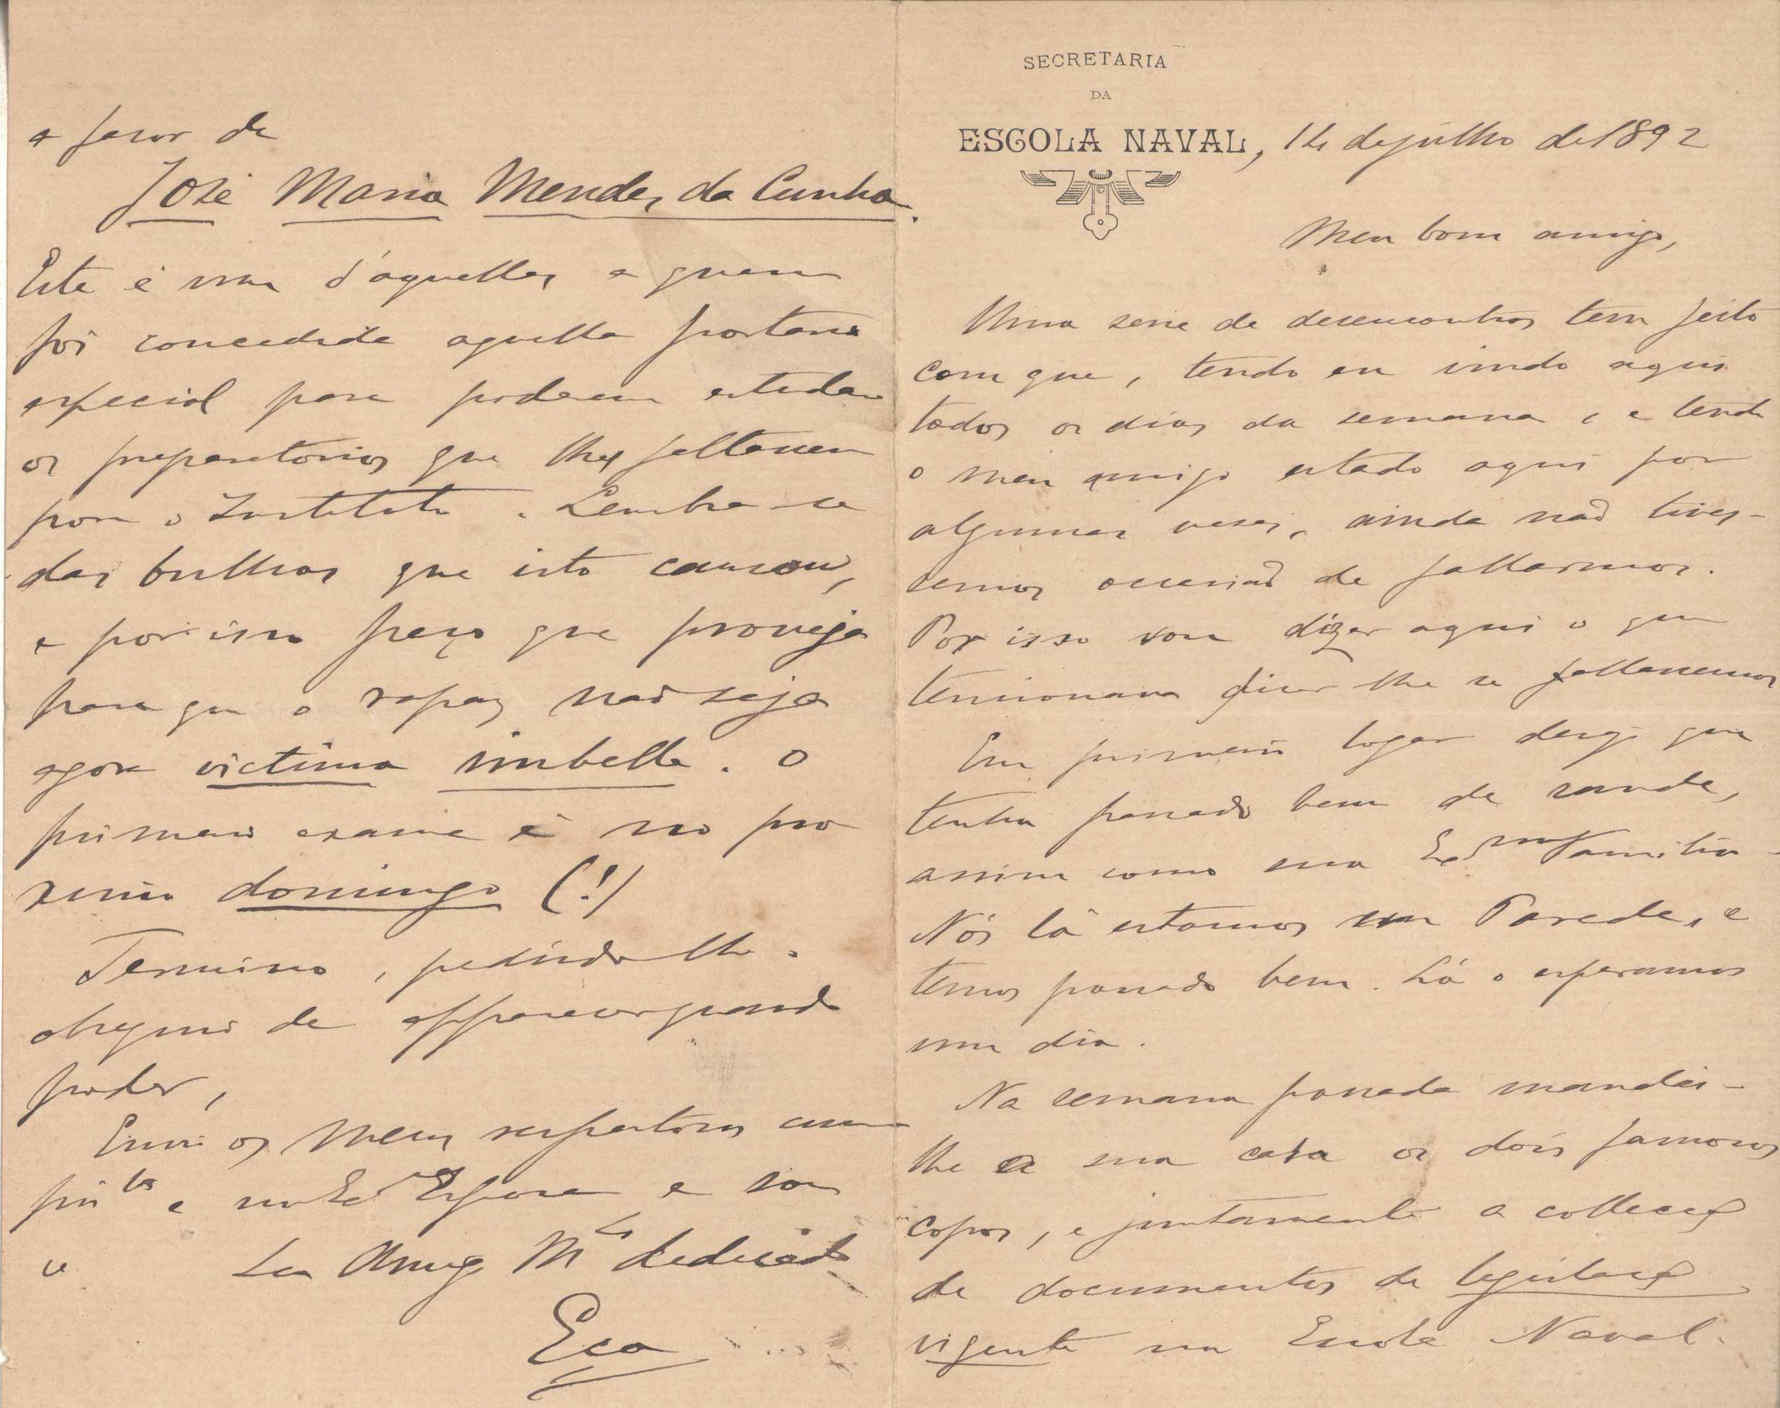 SECRETARIA
DA
ESCOLA NAVAL, 14 de julho de 1892
Meu bom amigo,
Uma serie de desencontros tem feito
com que, tendo eu vindo aqui
todos os dias da semana, e tendo
o meu amigo estado aqui por
algumas vezes, ainda não tives-
semos occasião de fallarmos.
Por isso vou dizer aqui o que
tencionava dizer-lhe se fallassemos
Em primeiro logar desejo que
tenha passado bem de saude,
assim como sua Exma Familia.
Nós lá estamos em Parede, e
temos passado bem. Lá o esperamos
um dia.
Na semana passada mandei-
lhe a sua casa os dois famosos
copos, e juntamente a collecção
de documentos de legislação
vigente na Escola Naval.
a favor de
José Maria Mendes da Cunha.
Este é um d'aquelles a quem
foi concedida aquella portaria
especial para poderem estudar
os preparatorios que lhes faltavam
para o Instituto. Lembra-se
das bulhas que isto causou,
e por isso peço que proveja
para que o rapaz não seja
agora victima imbelle. O
primeiro exame é no pro
ximo domingo (!)
Termino, pedindo-lhe o
obsequio de apparecer quando
poder,
Envie os meus respeitosos cum
primtos a sua Exma Esposa e sou
Seu Amigo Mto dedicado
Eça